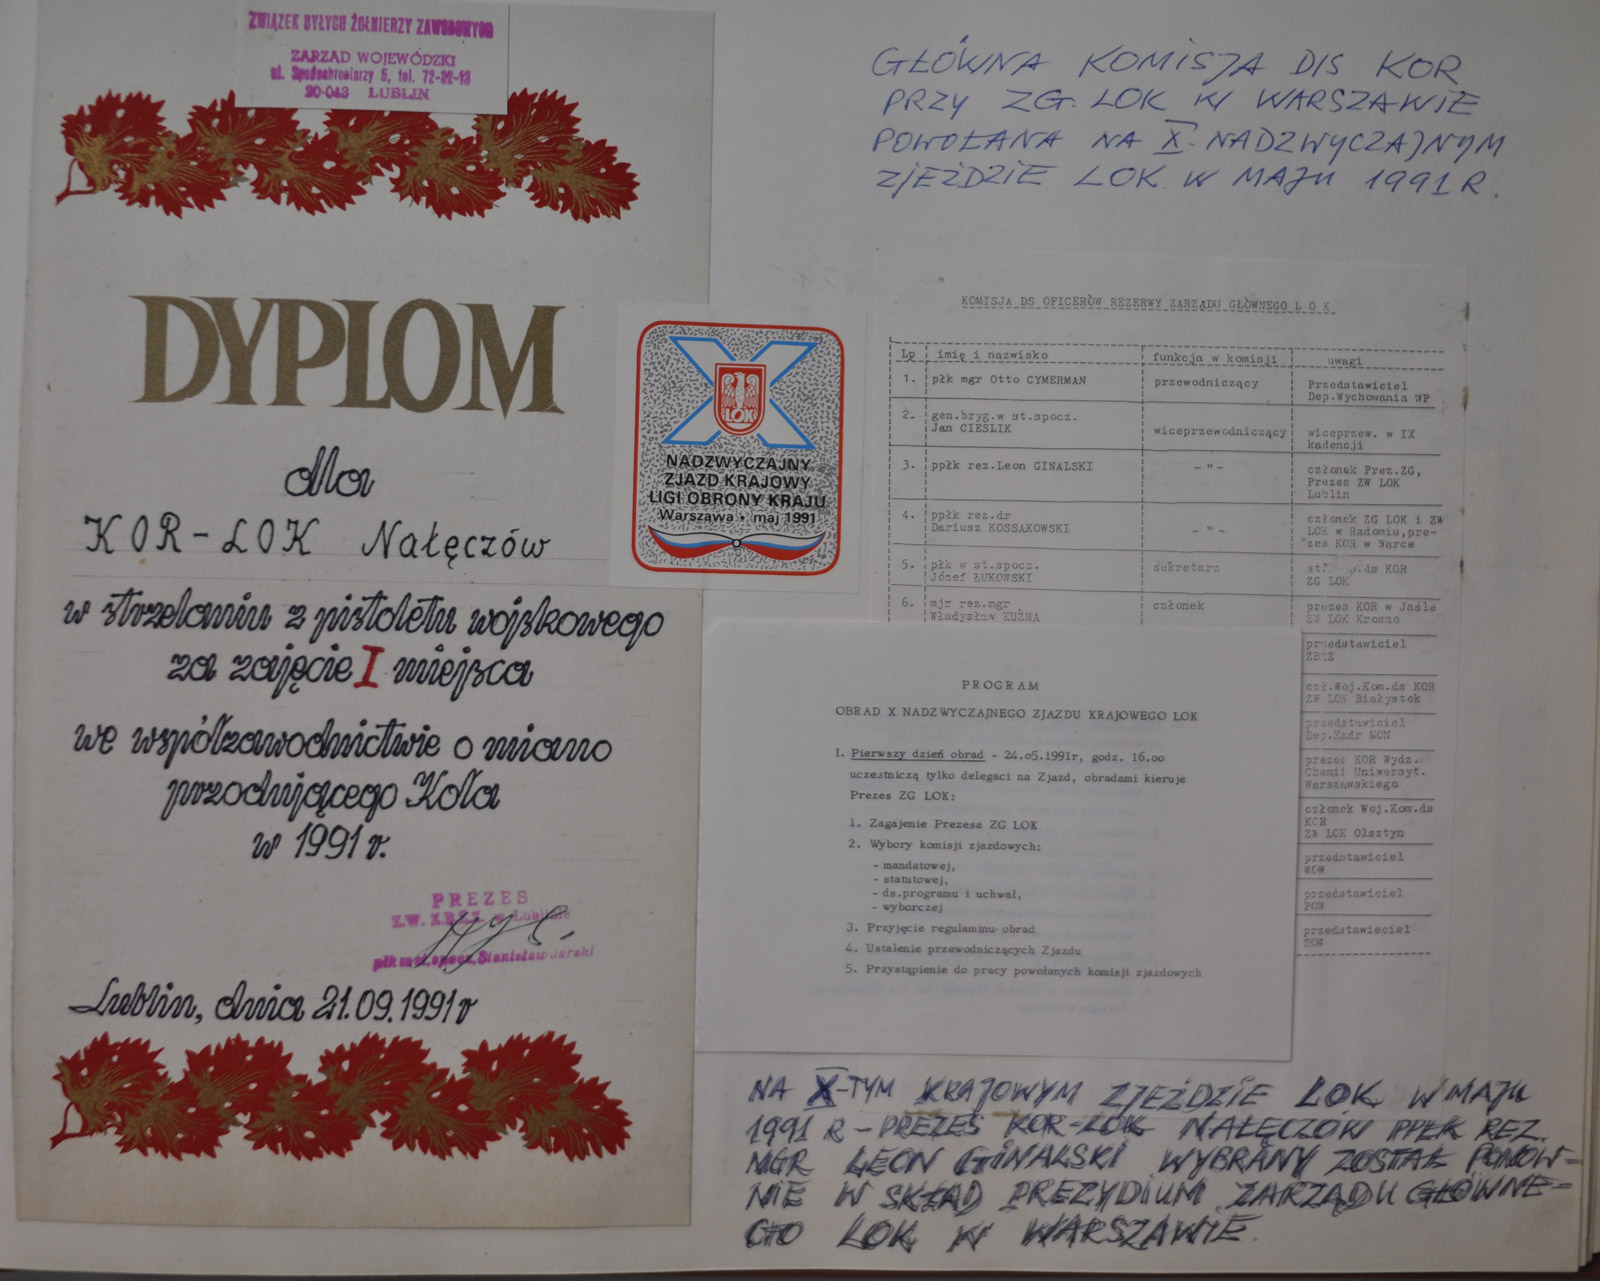 ZWIĄZEK BYŁYCH ŻOŁNIERZY ZAWODOWYCH
ZARZĄD WOJEWÓDZKI
ul. Spadochroniarzy 5, tel. 72-82-13
20-043 LUBLIN
DYPLOM
dla
KOR-LOK Nałęczów
w strzelaniu z pistoletu wojskowego
za zajęcie I miejsca
we współzawodnictwie o miano
przodującego Koła
w 1991 r.
PREZES
Z.W. Z.B.Ż.Z. w Lublinie
Stanisław Jarski
Lublin, dnia 21.09.1991 r
GŁÓWNA KOMISJA D/S KOR
PRZY ZG. LOK W WARSZAWIE
POWOŁANA NA X-NADZWYCZAJNYM
ZJEŹDZIE LOK. W MAJU 1991 R.
LOK
NADZWYCZAJNY
ZJAZD KRAJOWY
LIGI OBRONY KRAJU
Warszawa • maj 1991
KOMISJA DS OFICERÓW REZERWY ZARZĄDU GŁÓWNEGO L O K
Lp imię i nazwisko funkcja w komisji uwagi
1. płk mgr Otto CYMERMAN przewodniczący Przedstawiciel
Dep.Wychowania WP
2. gen.bryg.w st.spocz.
Jan CIEŚLIK wiceprzewodniczący wiceprzew. w IX
kadencji
3. ppłk rez.Leon GINALSKI -"- członek Prez.ZG,
Prezes ZW LOK
Lublin
4. ppłk rez.dr członek ZG LOK i ZW
Dariusz KOSSAKOWSKI -"- LOK w Radomiu,pre-
zes KOR w Warce
5. płk w st.spocz. sekretarz ds KOR
Józef ŁUKOWSKI ZG LOK
6. mjr rez.mgr członek prezes KOR w Jaśle
Władysław KUŹMA ZW LOK Krosno
przedstawiciel
ZBŻZ
czł.Woj.Kom.ds KOR
ZW LOK Białystok
przedstawiciel
Dep.Kadr MON
prezes KOR Wydz.
Chemii Uniwersyt.
Warszawskiego
członek Woj.Kom.ds
KOR
ZW LOK Olsztyn
przedstawiciel
WOW
przedstawiciel
POW
przedstawieciel
ŚOW
PROGRAM
OBRAD X NADZWYCZAJNEGO ZJAZDU KRAJOWEGO LOK
1. Pierwszy dzień obrad - 24.o5.1991r, godz. 16.oo
uczestniczą tylko delegaci na Zjazd, obradami kieruje
Prezes ZG LOK:
1. Zagajenie Prezesa ZG LOK
2. Wybory komisji zjazdowych:
- mandatowej,
- statutowej,
- ds.programu i uchwał,
- wyborczej
3. Przyjęcie regulaminu obrad
4. Ustalenie przewodniczących Zjazdu
5. Przystąpienie do pracy powołanych komisji zjazdowych
NA X-TYM KRAJOWYM ZJEŹDZIE LOK W MAJU
1991 R - PREZES KOR-LOK NAŁĘCZÓW PPŁK REZ.
MGR LEON GINALSKI WYBRANY ZOSTAŁ PONOW-
NIE W SKŁAD PREZYDIUM ZARZĄDU GŁÓWNE-
GO LOK W WARSZAWIE.